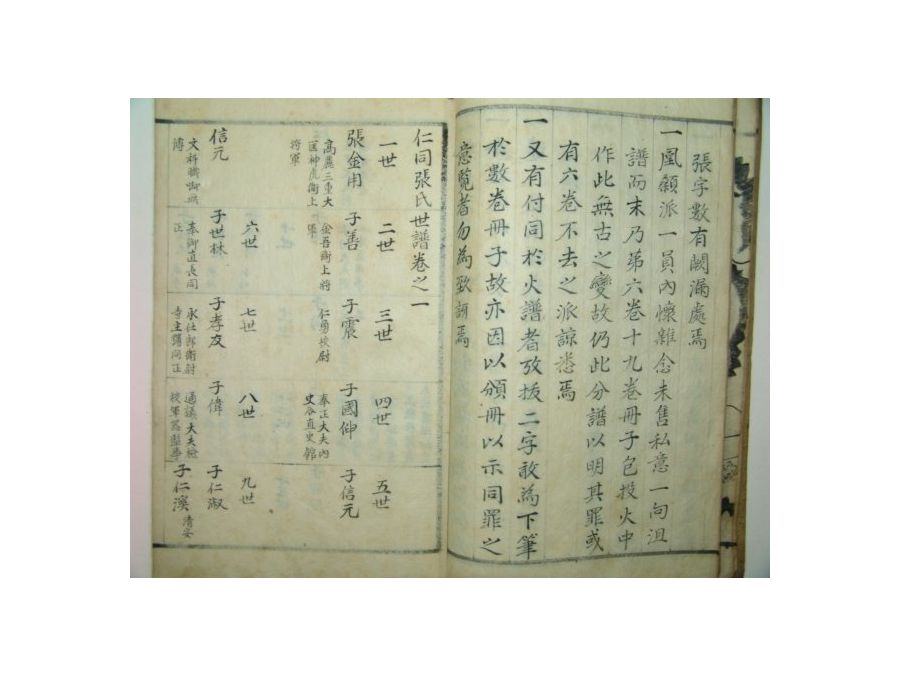 張字數有闕漏處焉
一凰顙派一員內懷雜念未售私意一向沮
譜而末乃第六卷十九卷冊子包投火中
作此無古之變故仍此分譜以明其罪或
有六卷不去之派諒悉焉
一又有付同於火譜者攷拔二字敢為下筆
於數卷冊子故亦因以頒冊以示同罪之
意覧者勿為致訝焉
仁同張氏世譜卷之一
一世 二世 三世 四世 五世
張金用 高麗三重大匡神虎衛上將軍
子善 金吾衛上將軍
子震 仁勇校尉
子國仲 奉正大夫內史令直史館
子信元
六世 七世 八世 九世
信元 文科職御
子世林 奉御直長同正
子孝友 承仕郎衛尉寺主簿同正
子偉 通議大夫檢校軍器監事
子仁淑
子仁濱 清安